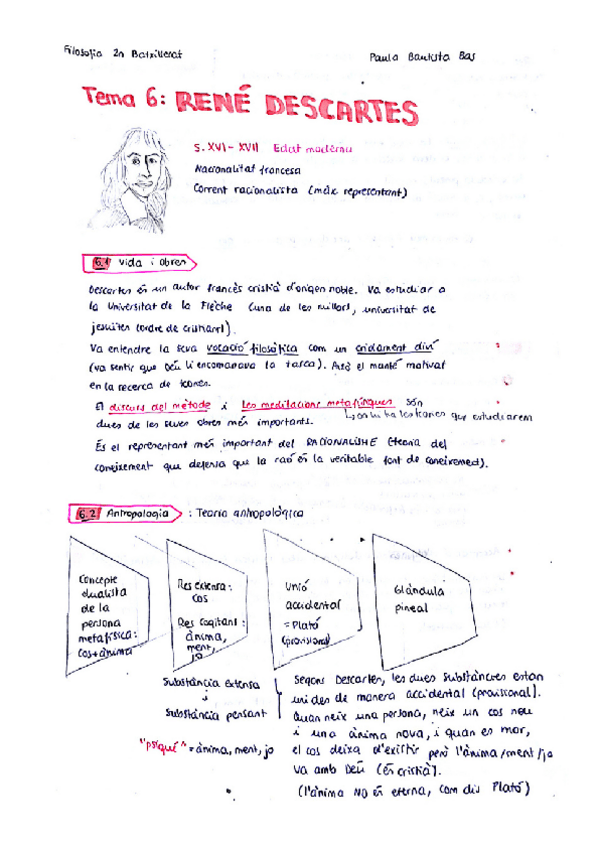 Filosofia 2n Batxillerat
Paula Bautista Bas
Tema 6: RENÉ DESCARTES
S. XVI - XVII Edat moderna
Nacionalitat francesa
Corrent racionalista (màx representant)
6.1 Vida i obres
Descartes és un autor francès cristià d'origen noble. Va estudiar a
la Universitat de la Flèche (una de les millors, universitat de
jesuïtes (ordre de cristians)).
Va entendre la seva vocació filosòfica com un cridament diví
(va sentir que Déu li encomanava la tasca). Això el manté motivat
en la recerca de
El discurs del método i les meditacions metafísiques són
dues de les seves obres més importants.
on hi ha les que estudiarem
És el representant més important del RACIONALISME (teoria del
coneixement que defensa que la raó és la veritable font de coneixement).
6.2 Antropologia : Teoria antropològica
Concepte
dualista
de la
persona
metafísica:
cos+ànima
Res extensa:
cos
Res cogitans:
ànima,
ment,
jo
Unió
accidental
= Plató
(provisional)
Glàndula
pineal
Substància extensa
i
Substància pensant
"psiqué" = ànima, ment, jo
Segons Descartes, les dues substàncies estan
unides de manera accidental (provisional).
Quan neix una persona, neix un cos nou
i una ànima nova, i quan es mor,
el cos deixa d'existir però l'ànima/ment/jo
va amb Déu (és cristià).
(l'ànima NO és eterna, com diu Plató)